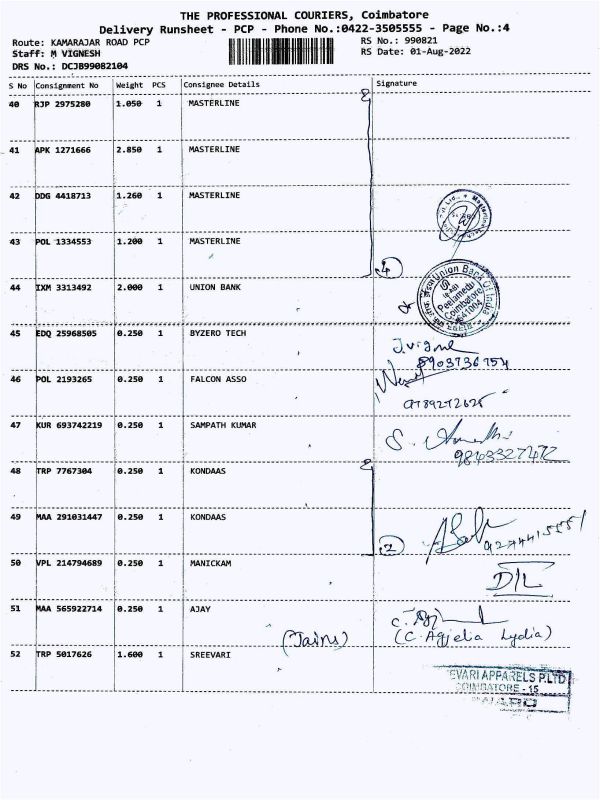 THE PROFESSIONAL COURIERS, Coimbatore
Delivery Runsheet - PCP - Phone No.:0422-3505555 - Page No.:4
Route: KAMARAJAR ROAD PCP RS No.: 990821
Staff: M VIGNESH RS Date: 01-Aug-2022
DRS No.: DCJB99082104
S No Consignment No Weight PCS Consignee Details Signature
40 RJP 2975280 1.050 1 MASTERLINE
41 APK 1271666 2.850 1 MASTERLINE
42 DDG 4418713 1.260 1 MASTERLINE
43 POL 1334553 1.200 1 MASTERLINE
4
44 IXM 3313492 2.000 1 UNION BANK
Union Bank Of India
Peelamedu
Coimbatore
641004
45 EDQ 25968505 0.250 1 BYZERO TECH
J.vigne
8903736754
46 POL 2193265 0.250 1 FALCON ASSO
9789272625
47 KUR 693742219 0.250 1 SAMPATH KUMAR
S.
9843327472
48 TRP 7767304 0.250 1 KONDAAS
49 MAA 291031447 0.250 1 KONDAAS
2
50 VPL 214794689 0.250 1 MANICKAM
D/L
51 MAA 565922714 0.250 1 AJAY
(Jains) (C. Agjelia Lydia)
52 TRP 5017626 1.600 1 SREEVARI
EVARI APPARELS P.LTD
COIMBATORE - 15